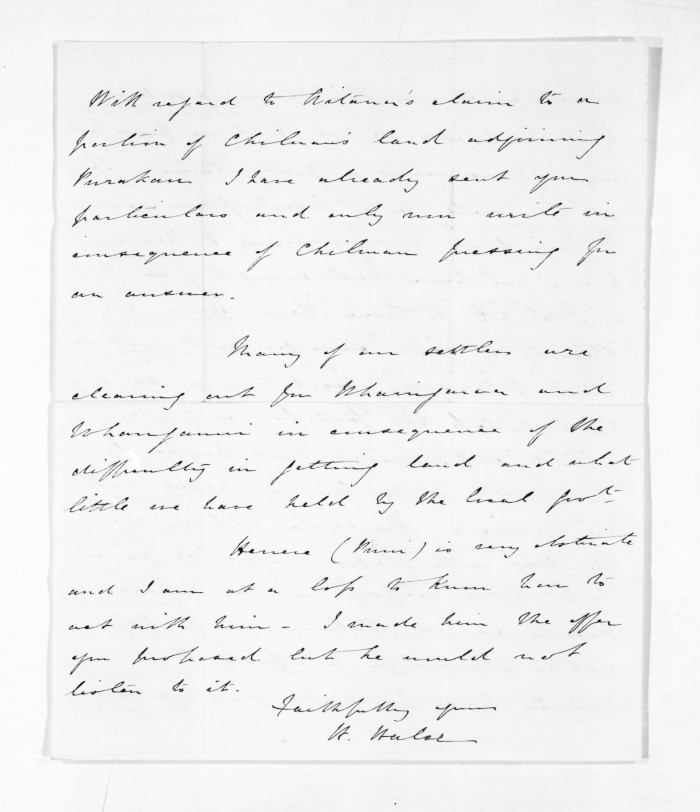 With regard to Witana's claim to a
portion of Chilman's land adjoining
Purakau I have already sent you
particulars and only now write in
consequence of Chilman pressing for
an answer.
Many of our settlers are
clearing out for and
Whanganui in consequence of the
difficulty in getting land and what
little we have held by the local Govt.
Herewe (Puni) is very obstinate
and I am at a loss to know how to
act with him - I made him the offer
you proposed but he would not
listen to it.
Faithfully yours
H. Halse